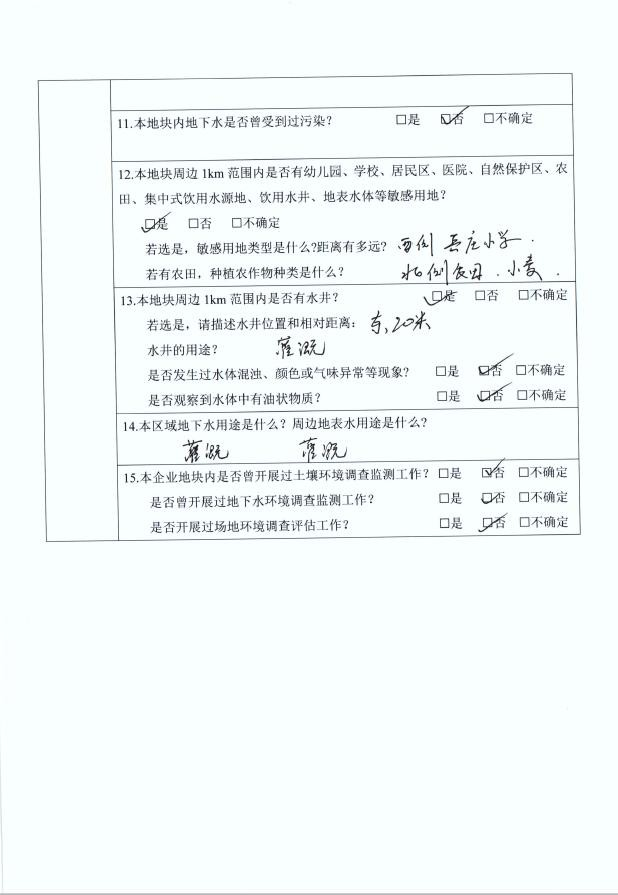 11.本地块内地下水是否曾受到过污染? □是 ☑否 □不确定
12.本地块周边 1km 范围内是否有幼儿园、学校、居民区、医院、自然保护区、农
田、集中式饮用水源地、饮用水井、地表水体等敏感用地?
☑是 □否 □不确定
若选是，敏感用地类型是什么?距离有多远? 西侧 吕庄小学.
若有农田，种植农作物种类是什么? 北侧农田.小麦.
13.本地块周边 1km 范围内是否有水井? ☑是 □否 □不确定
若选是，请描述水井位置和相对距离: 东,20米
水井的用途? 灌溉
是否发生过水体混浊、颜色或气味异常等现象? □是 ☑否 □不确定
是否观察到水体中有油状物质? □是 ☑否 □不确定
14.本区域地下水用途是什么? 周边地表水用途是什么?
灌溉 灌溉
15.本企业地块内是否曾开展过土壤环境调查监测工作? □是 ☑否 □不确定
是否曾开展过地下水环境调查监测工作? □是 ☑否 □不确定
是否开展过场地环境调查评估工作? □是 ☑否 □不确定